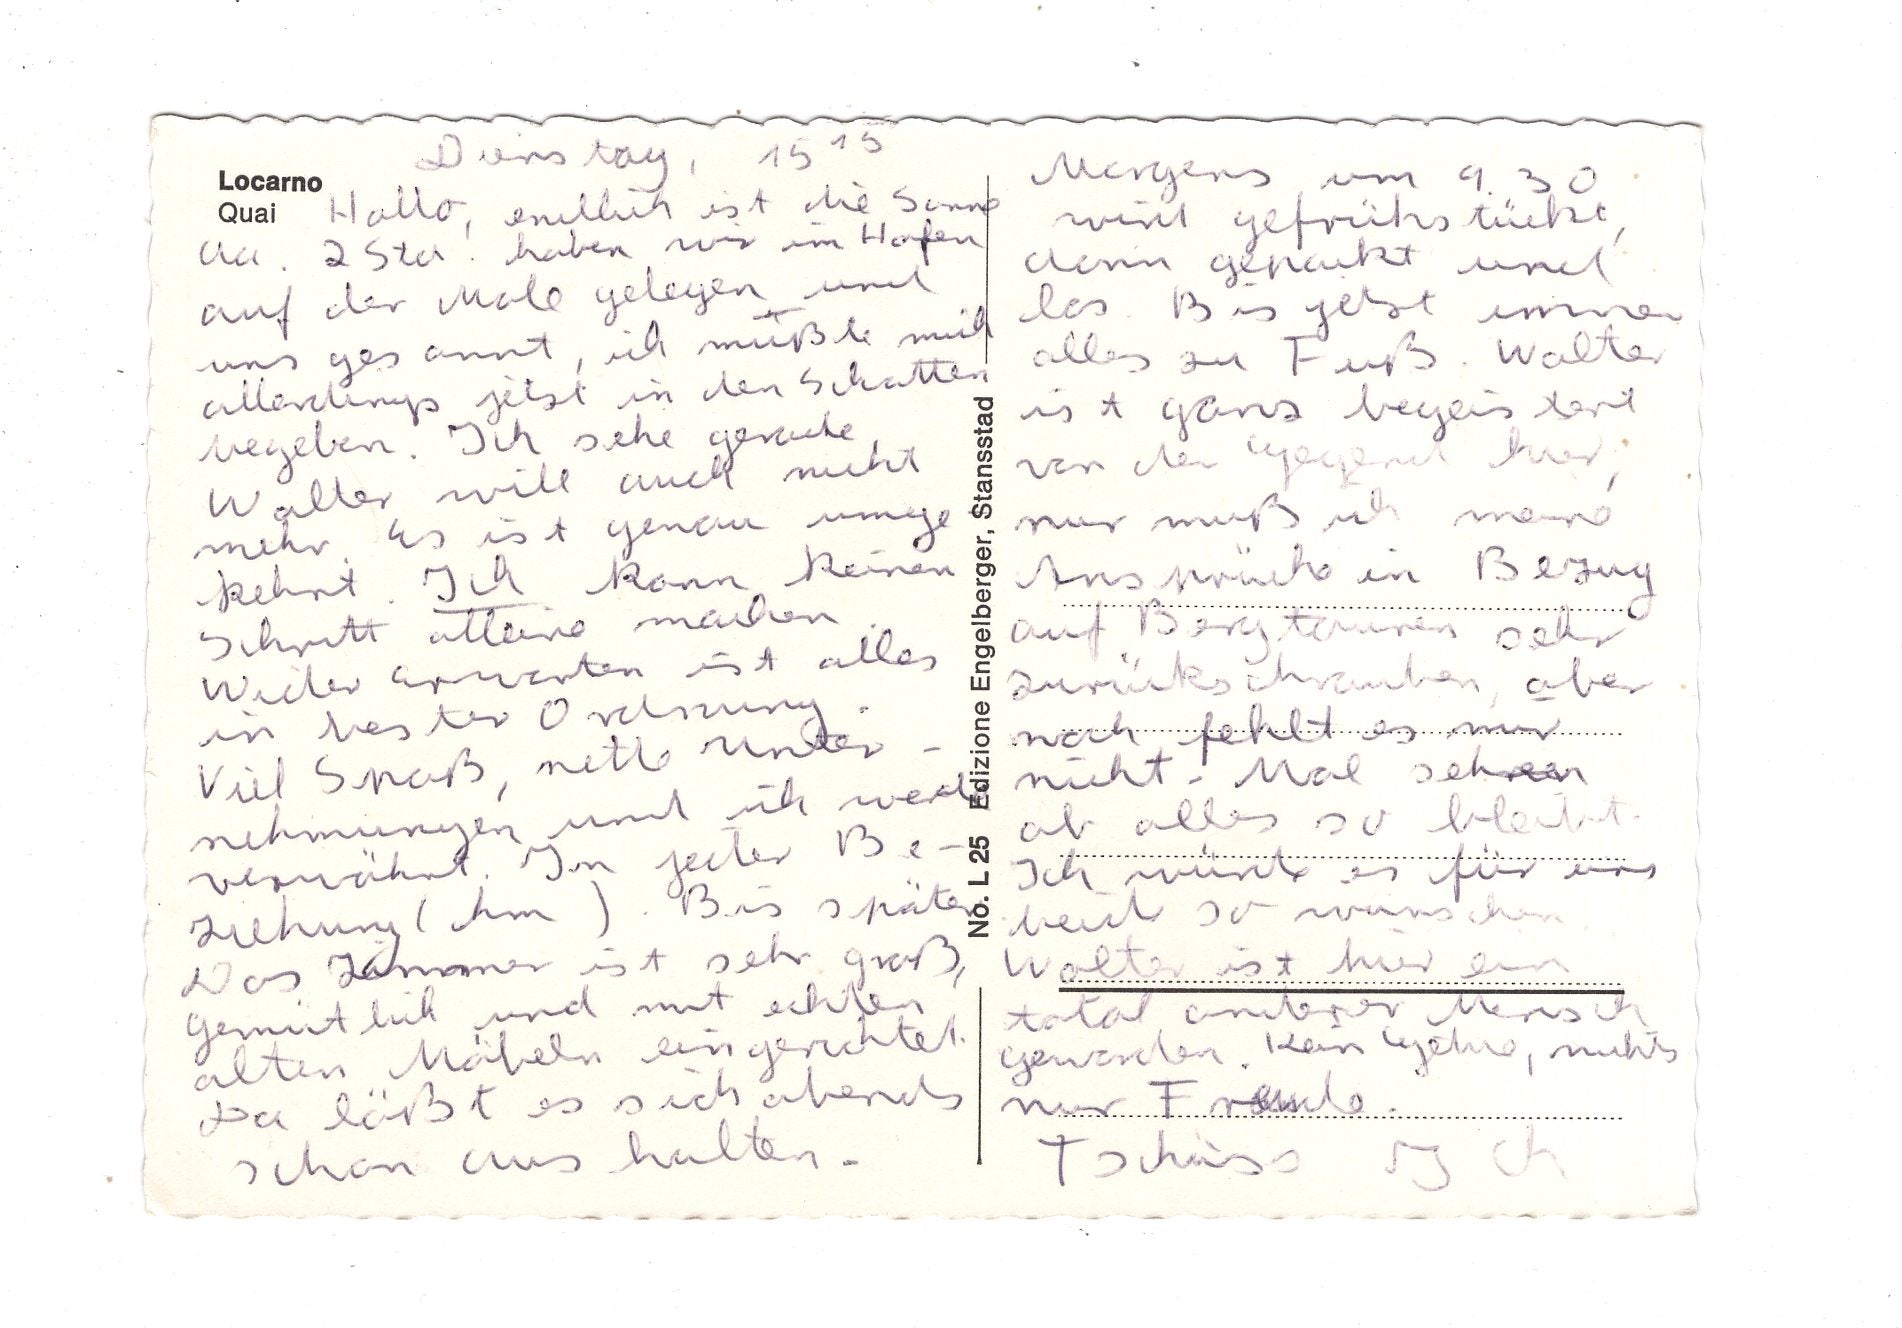 Locarno
Quai
Dienstag, 15¹⁵
Hallo, endlich ist die Sonne
da. 2 Std! haben wir im Hafen
auf der Mole gelegen und
uns gesonnt, ich mußte mich
allerdings jetzt in den Schatten
begeben. Ich sehe gerade,
Walter will auch nicht
mehr. Es ist genau umge
kehrt. Ich kann keinen
Schritt alleine machen.
Wider Erwarten ist alles
in bester Ordnung.
Viel Spaß, nette Unter-
nehmungen und ich werde
verwöhnt. In jeder Be-
ziehung (hm). Bis später
Das Zimmer ist sehr groß,
gemütlich und mit echten
alten Möbeln eingerichtet.
Da läßt es sich abends
schon aushalten.
No. L 25 Edizione Engelberger, Stansstad
Morgens um 9.30
wird gefrühstückt,
dann gepackt und
los. Bis jetzt immer
alles zu Fuß. Walter
ist ganz begeistert
von der Gegend hier,
nur muß ich meine
Ansprüche in Bezug
auf Bergtouren sehr
zurückschrauben, aber
noch fehlt es mir
nicht. Mal sehen
ob alles so bleibt.
Ich würde es für uns
beide so wünschen.
Walter ist hier ein
total anderer Mensch
geworden. Kein, nichts
nur Freude.
Tschüss Ich